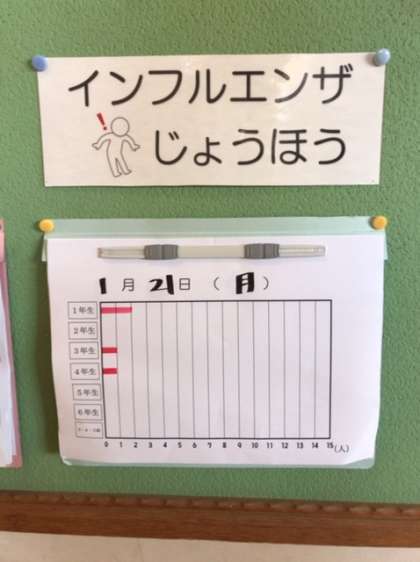 インフルエンザ
!
じょうほう
1月21日（月）
1年生
2年生
3年生
4年生
5年生
6年生
0 1 2 3 4 5 6 7 8 9 10 11 12 13 14 15(人)